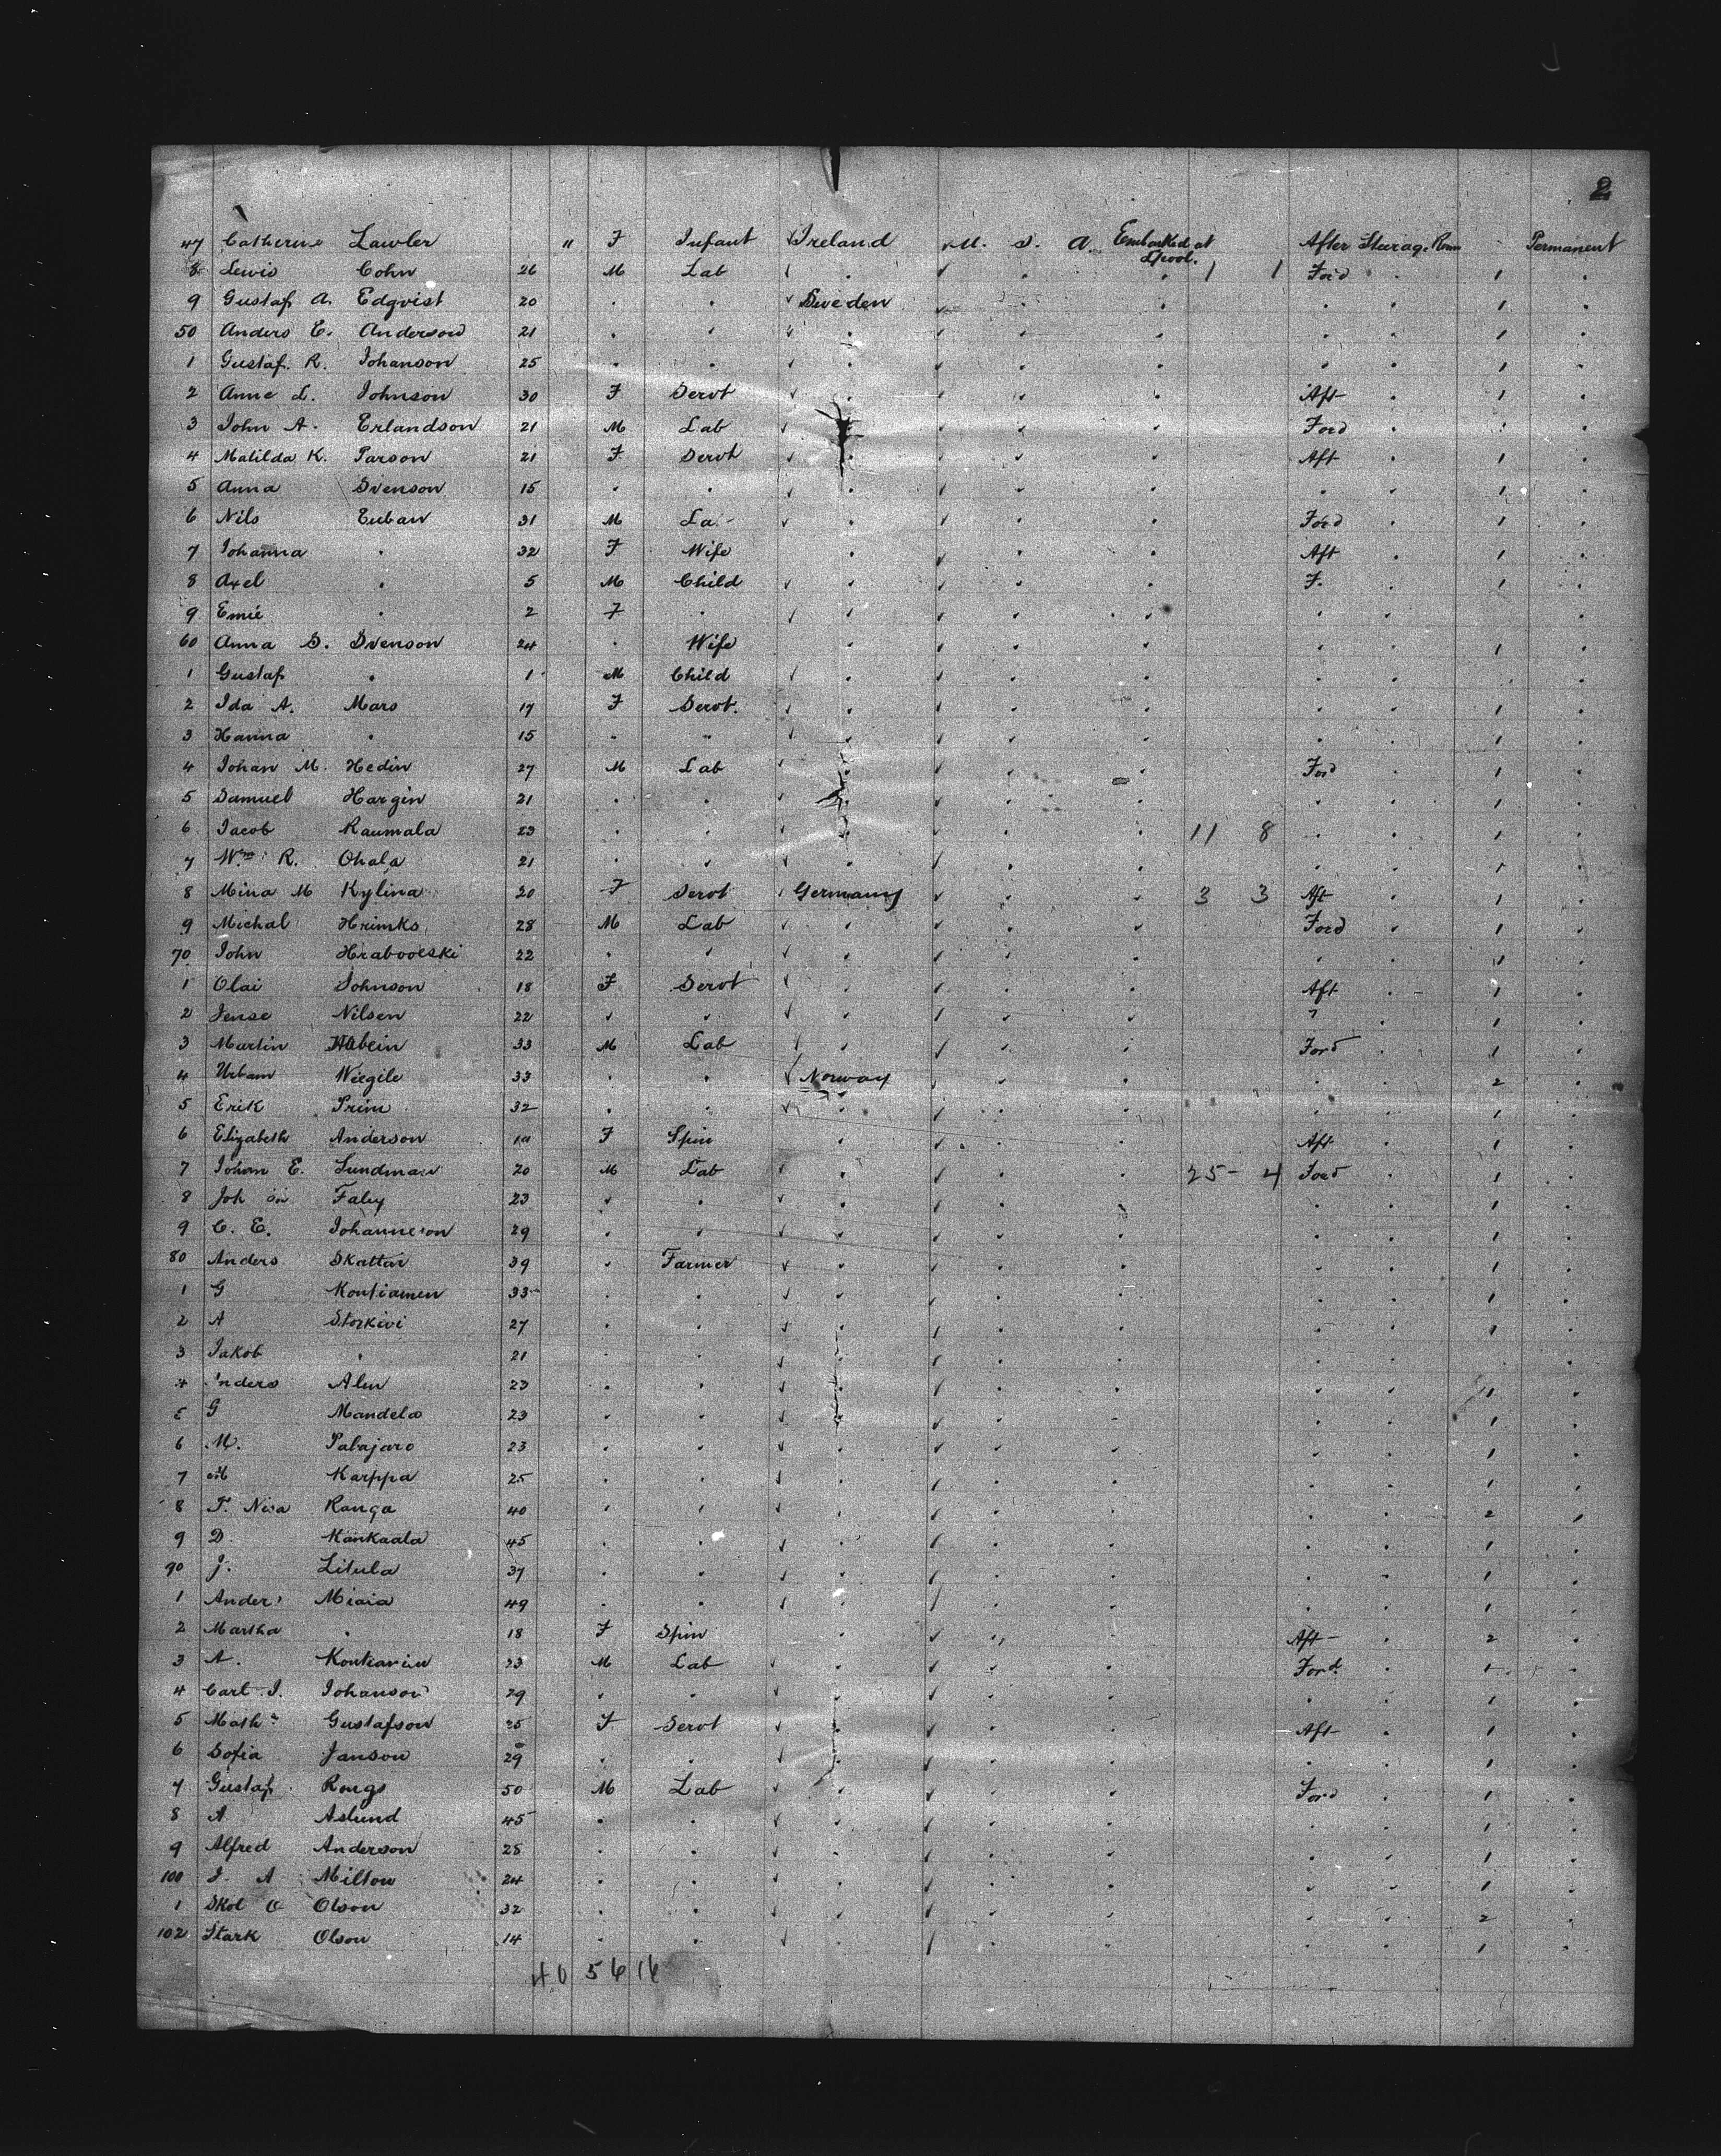 2
47 Catherine Lawler " F Infant Ireland U. S. A. Embarked at L'pool. After Steerage Room Permanent
8 Lewis Cohn 26 M Lab 1 1 Ford 1
9 Gustaf A. Edqvist 20 Sweden 1
50 Anders E. Anderson 21 1
1 Gustaf. R. Johanson 25 1
2 Anne L. Johnson 30 F Servt Aft 1
3 John A. Erlandson 21 M Lab Ford 1
4 Matilda K. Parson 21 F Servt Aft 1
5 Anna Svenson 15 1
6 Nils 31 M La Ford 1
7 Johanna 32 F Wife Aft 1
8 Axel 5 M Child F. 1
9 Emie 2 F
60 Anna S. Svenson 24 Wife 1
1 Gustaf 1 M Child
2 Ida A. Mars 17 F Servt. 1
3 Hanna " 15 " 1
4 Johan M. Hedin 27 M Lab Ford 1
5 Samuel Hargin 21 1
6 Jacob Raumala 23 11 8 1
7 Wm R. Ohala 21 1
8 Mina M Kylina 20 F Servt Germany 3 3 Aft 1
9 Michal Hrimks 28 M Lab Ford 1
70 John 22 1
1 Olai Johnson 18 F Servt Aft 1
2 Jense Nilsen 22 1
3 Martin 33 M Lab Ford 1
4 Urban Wiegile 33 Norway 2
5 Erik Prim 32 1
6 Elizabeth Anderson F Spin Aft 1
7 Johan E. Lundman 20 M Lab 25 - 4 Ford 1
8 Faley 23 1
9 C. E. Johanneson 29 1
80 Anders Skattar 39 Farmer 1
1 G Kontiamen 33 1
2 A Storkivi 27 1
3 Jakob " 21
4 nders Alen 23 1
5 G Mandela 23 1
6 M. Palajaro 23 1
7 Karppa 25 1
8 Ranga 40 2
9 D. Kankaala 45 1
90 J. Litula 37 1
1 Ander Miaia 49 1
2 Martha " 18 F Spin Aft 2
3 A. 23 M Lab Ford. 1
4 Carl J. Johanson 29 1
5 Math Gustafson 25 F Servt Aft 1
6 Sofia Janson 29 1
7 Gustaf Rongs 50 M Lab Ford 1
8 A Aslund 45 1
9 Alfred Anderson 25 1
100 J. A Milton 24 1
1 Skol O Olson 32 2
102 Stark Olson 14 1
40 56 16